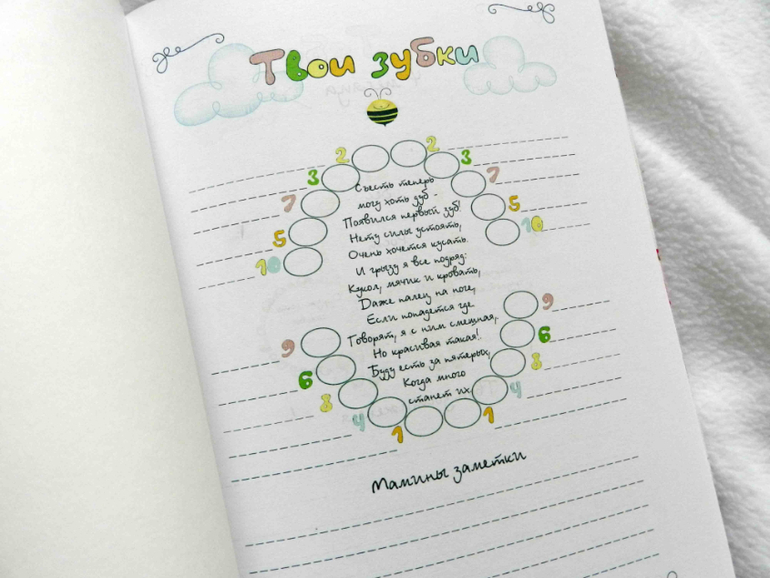 Твои зубки
2 2
3 3
7 7
5 5
10 10
Съесть теперь
могу хоть дуб -
Появился первый зуб!
Нету силы устоять,
Очень хочется кусать.
И грызу я все подряд:
Кукол, мячик и кровать,
Даже палец на ноге,
Если попадется где.
Говорят, я с ним смешная,
Но красивая такая!!
Буду есть за пятерых,
Когда много
станет их
9 9
6 6
8 8
4 4
1 1
Мамины заметки